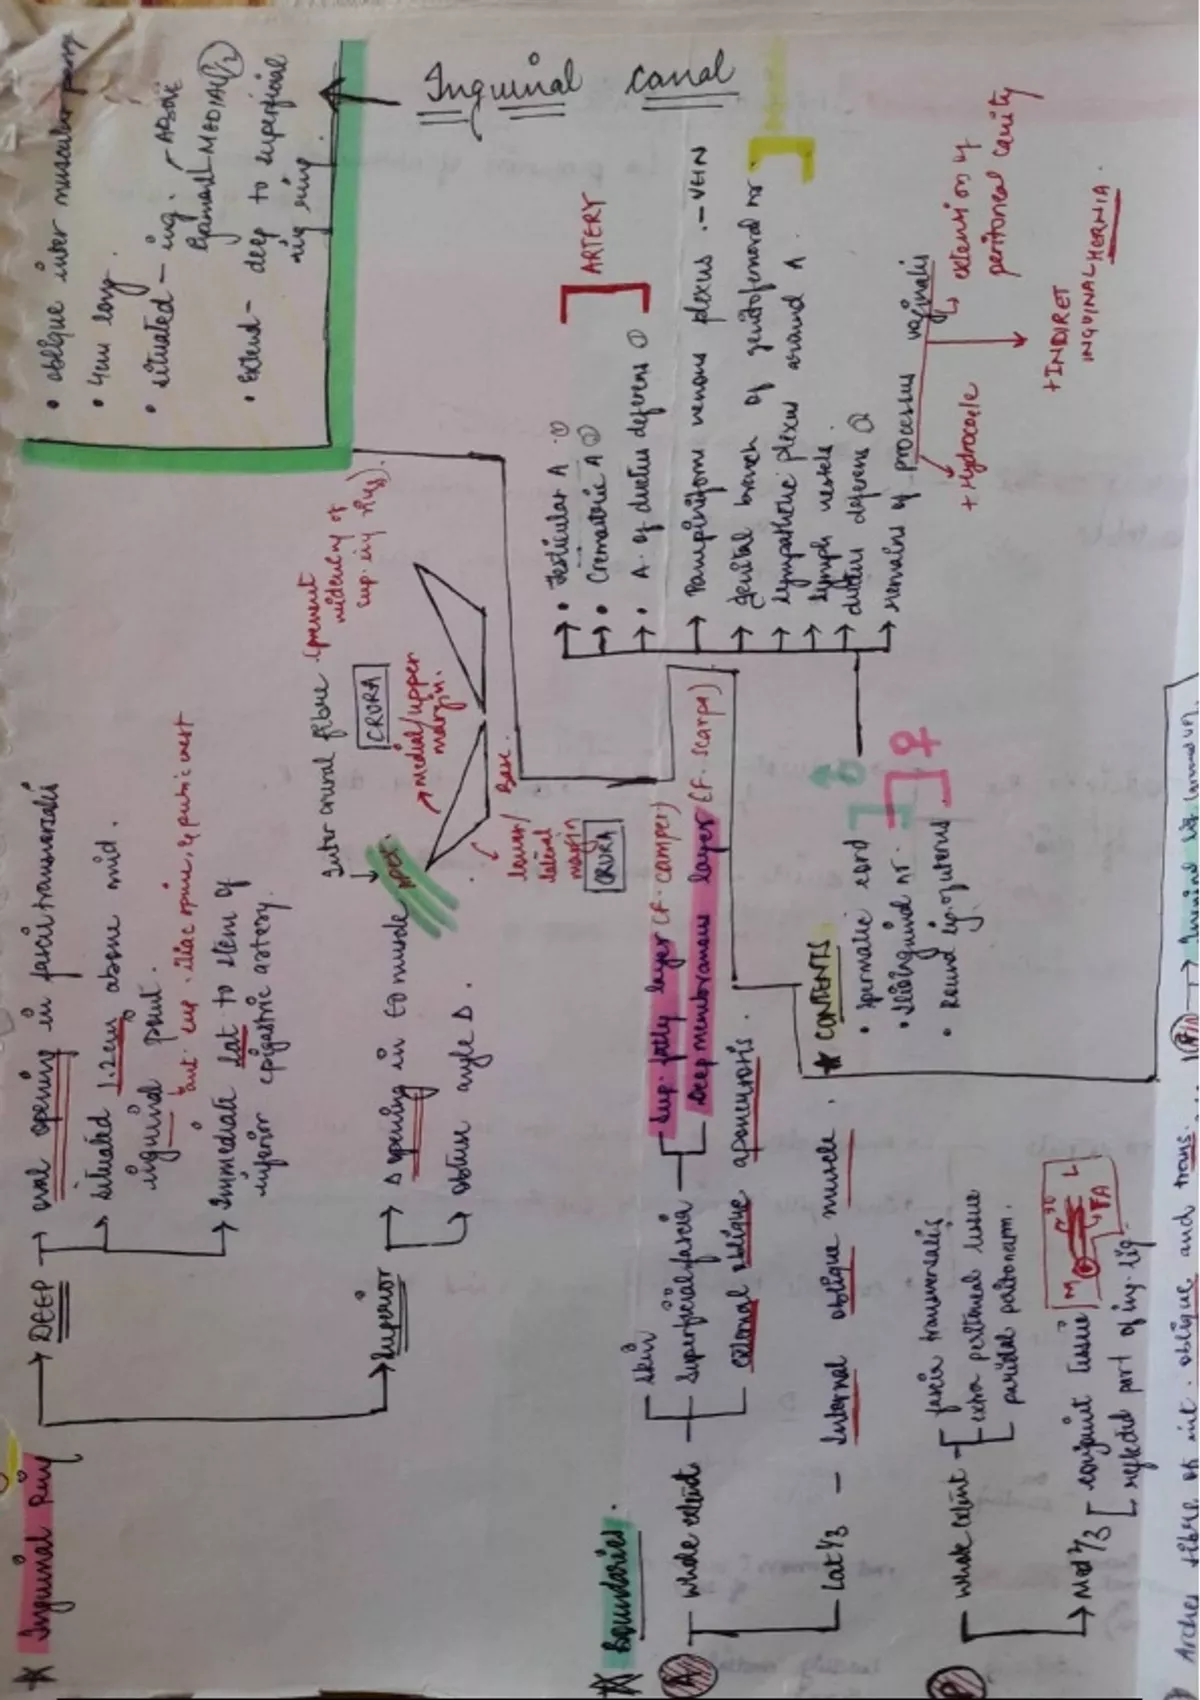 Inguinal canal
• oblique inter muscular passg
• 4cm long.
• situated - ing. - ABOVE
ligament - MEDIAL 1/2
• Extend - deep to superficial
ing ring.
* Inguinal Ring
→ DEEP → oval opening in fascia transversalis
→ situated 1.2cm above mid.
inguinal point.
ant. sup. iliac spine, & pubic crest
→ Immediate lat to stem of
inferior epigastric artery.
→ Superior → Δ opening in EO muscle
→ obtuse angle Δ.
Inter crural fibre (prevent
widening of
sup. ing ring).
APEX
CRURA
→ medial/upper
margin.
Base.
lower/
lateral
margin
CRURA
* Boundaries.
A - whole extent - Skin
Superficial fascia - Sup. fatty layer (F. camper)
Deep membranous layer (F. scarpa)
External oblique aponeurosis.
Lat 1/3 - Internal oblique muscle.
P whole extent - fascia transversalis
extra peritoneal tissue
parietal peritoneum.
→ Med 2/3 [ conjoint tissue
reflected part of ing. lig.
M L
FA
* CONTENTS
• Spermatic cord ♂
• Ilioinguinal nr.
• Round lig. of uterus ♀
→ • Testicular A ①
→ • Cremasteric A ②
→ • A. of ductus deferens ③
ARTERY
→ Pampiniform venous plexus. - VEIN
→ genital branch of genitofemoral nr.
→ sympathetic plexus around A
→ lymph vessels.
→ ductus deferens
→ remains of processus vaginalis
↳ extension of
peritoneal cavity
+ Hydrocoele
+ INDIRET
INGUINAL HERNIA.
Arches fibre of int. oblique and trans.